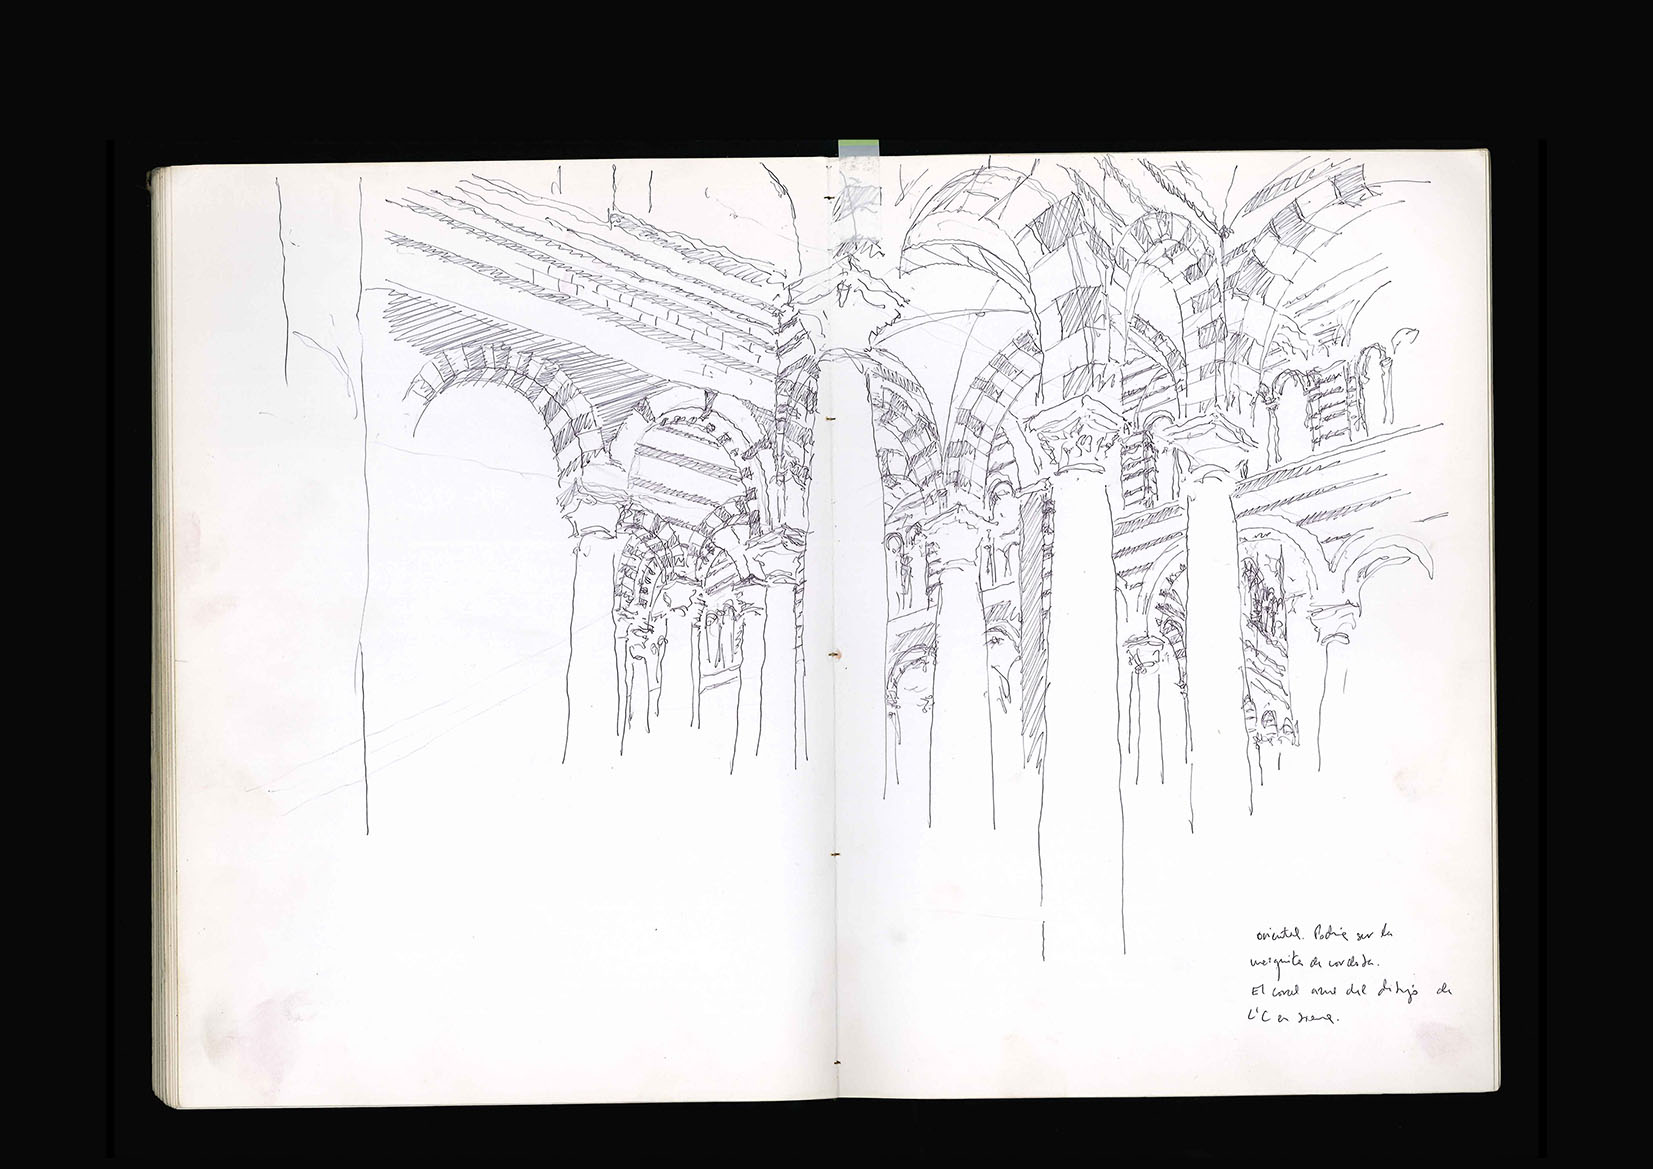 oriental. Podría ser la
mezquita de cordoba.
El coral azul del dibujo de
L'C en Siena.